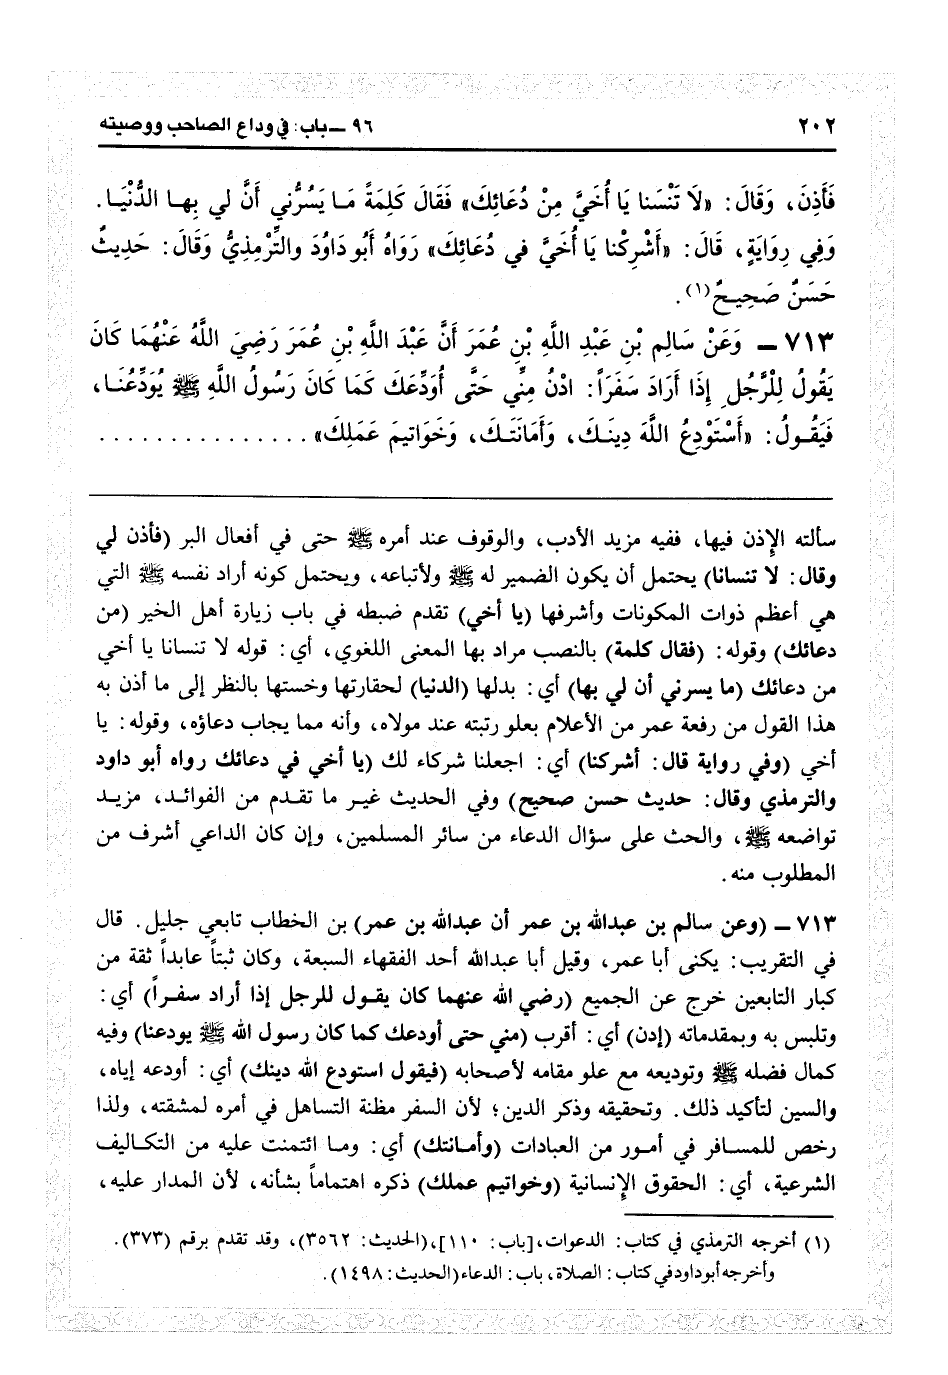 ٢٠٢ ٩٦ ـ باب: في وداع الصاحب ووصيته
فَأَذِنَ، وَقَالَ: «لَا تَنْسَنا يَا أُخَيَّ مِنْ دُعَائِكَ» فَقَالَ كَلِمَةً مَـا يَسُرُّني أَنَّ لي بِهـا الدُّنْيَـا.
وَفِي رِوَايَةٍ، قَالَ: «أَشْرِكْنا يَا أُخَيَّ في دُعَائِكَ» رَوَاهُ أَبُو دَاوُدَ والتِّرْمِذِيُّ وَقَالَ: حَدِيثٌ
حَسَنٌ صَحِيحٌ(١).
٧١٣ ـ وَعَنْ سَالِمِ بْنِ عَبْدِ اللَّهِ بْنِ عُمَرَ أَنَّ عَبْدَ اللَّهِ بْنِ عُمَرَ رَضِيَ اللَّهُ عَنْهُمَا كَانَ
يَقُولُ لِلْرَّجُلِ إِذَا أَرَادَ سَفَرَاً: ادْنُ مِنِّي حَتَّى أُوَدِّعَكَ كَمَا كَانَ رَسُولُ اللَّهِ ﷺ يُوَدِّعُنَـا،
فَيَقُـولُ: «أَسْتَوْدِعُ اللَّهَ دِينَـكَ، وَأَمَانَتَـكَ، وَخَوَاتِيمَ عَمَلِكَ» . . . . . . . . . . . . . . .
سألته الإِذن فيها، ففيه مزيد الأدب، والوقوف عند أمره ﷺ حتى في أفعال البر (فأذن لي
وقال: لا تنسانا) يحتمل أن يكون الضمير له ﷺ ولأتباعه، ويحتمل كونه أراد نفسه ﷺ التي
هي أعظم ذوات المكونات وأشرفها (يا أخي) تقدم ضبطه في باب زيارة أهل الخير (من
دعائك) وقوله: (فقال كلمة) بالنصب مراد بها المعنى اللغوي، أي: قوله لا تنسانا يا أخي
من دعائك (ما يسرني أن لي بها) أي: بدلها (الدنيا) لحقارتها وخستها بالنظر إلى ما أذن به
هذا القول من رفعة عمر من الأعلام بعلو رتبته عند مولاه، وأنه مما يجاب دعاؤه، وقوله: يا
أخي (وفي رواية قال: أشركنا) أي: اجعلنا شركاء لك (يا أخي في دعائك رواه أبو داود
والترمذي وقال: حديث حسن صحيح) وفي الحديث غيـر ما تقـدم من الفوائـد، مزيـد
تواضعه ﷺ، والحث على سؤال الدعاء من سائر المسلمين، وإن كان الداعي أشرف من
المطلوب منه.
٧١٣ ـ (وعن سالم بن عبدالله بن عمر أن عبدالله بن عمر) بن الخطاب تابعي جليل. قال
في التقريب: يكنى أبا عمر، وقيل أبا عبدالله أحد الفقهاء السبعة، وكان ثبتاً عابداً ثقة من
كبار التابعين خرج عن الجميع (رضي الله عنهما كان يقـول للرجل إذا أراد سفـراً) أي:
وتلبس به وبمقدماته (إدن) أي: أقرب (مني حتى أودعك كما كان رسول الله ﷺ يودعنا) وفيه
كمال فضله ﷺ وتوديعه مع علو مقامه لأصحابه (فيقول استودع الله دينك) أي: أودعه إياه،
والسين لتأكيد ذلك. وتحقيقه وذكر الدين؛ لأن السفر مظنة التساهل في أمره لمشقته، ولذا
رخص للمسـافر في أمـور من العبادات (وأمـانتك) أي: ومـا ائتمنت عليه من التكـاليف
الشرعية، أي: الحقوق الإِنسانية (وخواتيم عملك) ذكره اهتماماً بشأنه، لأن المدار عليه،
(١) أخرجه الترمذي في كتاب: الدعوات،[باب: ١١٠]،(الحديث: ٣٥٦٢)، وقد تقدم برقم (٣٧٣).
وأخرجه أبو داود في كتاب: الصلاة، باب: الدعاء (الحديث: ١٤٩٨).